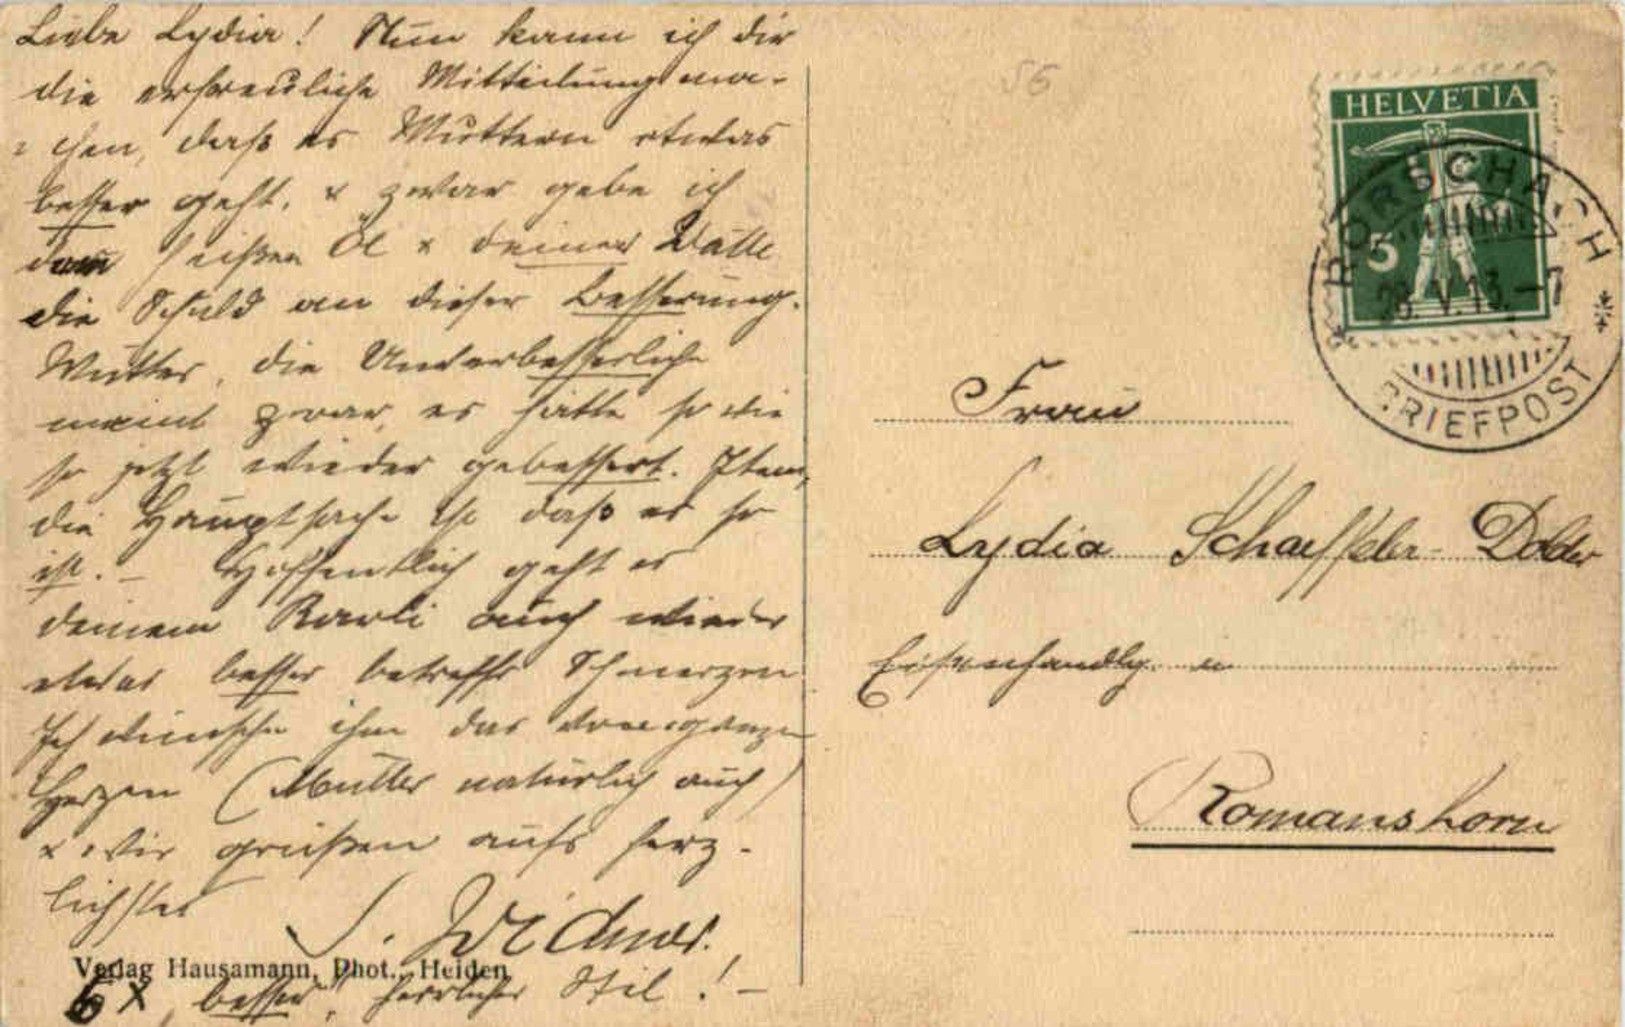 Liebe Lydia! Nun kann ich dir
die erfreuliche Mitteilung ma-
chen, daß es Muttern etwas
besser geht, x zwar gebe ich
dem heißen Öl x deiner Watte
die Schuld an dieser Besserung.
Mutter, die Unverbesserliche
meint zwar, es hätte so wie
so jetzt wieder gebessert. Item,
die Hauptsache ist daß es so
ist. – Hoffentlich geht es
deinem Karli auch wieder
etwas besser betreffs Schmerzen
Ich wünsche ihm das von ganzem
Herzen (Mutter natürlich auch)
x wir grüßen aufs herz-
lichste
Verlag Hausamann, Phot., Heiden
6 x "besser", herrlicher Stil! –
56
HELVETIA
5
RORSCHACH
V.13.–7
BRIEFPOST
Frau
Lydia Schaeffeler-Dolder
Eisenhandlg.
Romanshorn